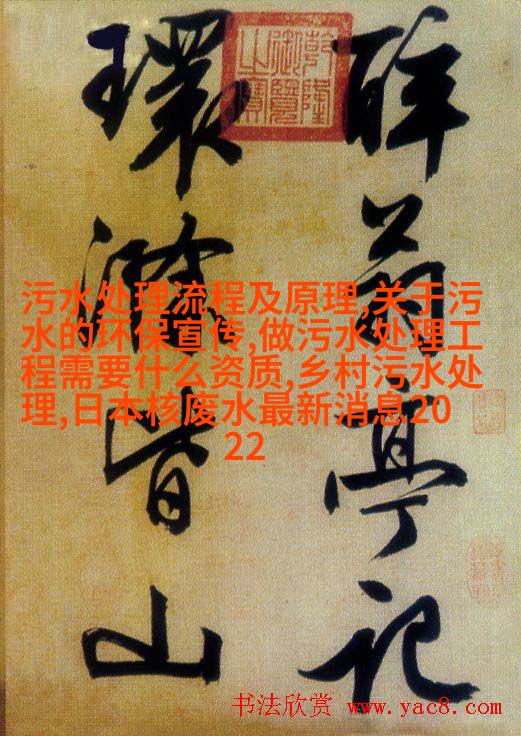 醉翁亭记
環滁皆山
乾隆
御覽
之寶
污水处理流程及原理,关于污
水的环保宣传,做污水处理工
程需要什么资质,乡村污水处
理,日本核废水最新消息20
22
书法欣赏 www.yac8.com